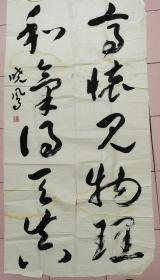 高怀见物理
和气得天真
晓凤